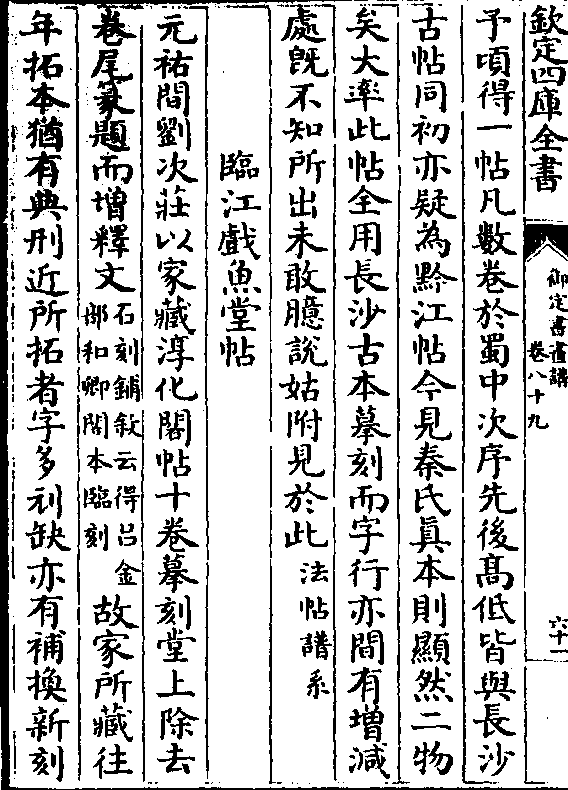 欽定四庫全書
御定書畫譜
卷八十九
六十一
予頃得一帖凡數卷於蜀中次序先後髙低皆與長沙
古帖同初亦疑為黔江帖今見秦氏眞本則顯然二物
矣大率此帖全用長沙古本摹刻而字行亦間有增減
處旣不知所出未敢臆說姑附見於此法帖譜系
臨江戲魚堂帖
元祐間劉次莊以家藏淳化閣帖十卷摹刻堂上除去
卷尾篆題而增釋文石刻鋪敘云得吕金部和卿閣本臨刻故家所藏往
年拓本猶有典刑近所拓者字多刓缺亦有補換新刻